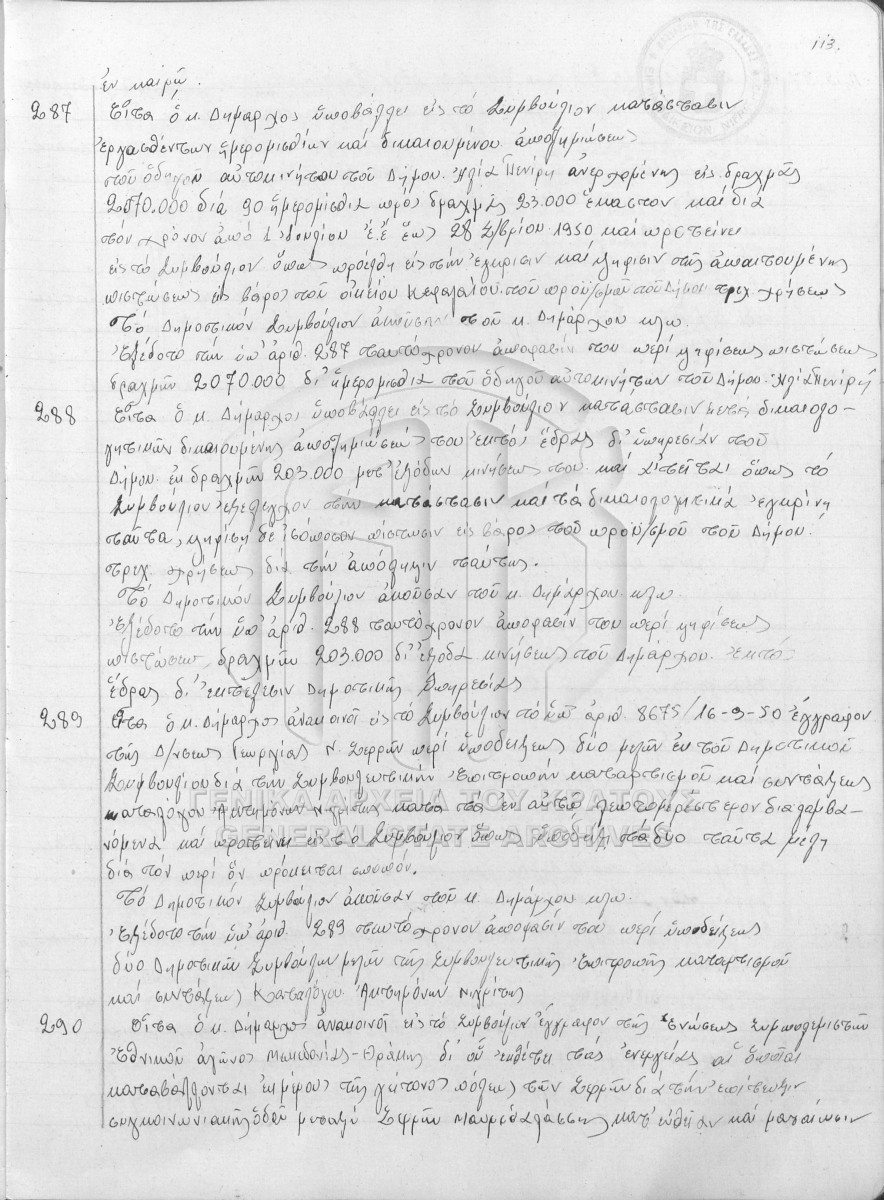 113.
ἐν καιρῷ.
287 Εἶτα ὁ κ. Δήμαρχος ὑποβάλλει εἰς τό Συμβούλιον κατάστασιν
ἐργασθέντων ἡμερομισθίων καί δικαιουμένου ἀποζημιώσεως
τοῦ ὁδηγοῦ αὐτοκινήτου τοῦ Δήμου Ἠλία Πενίρη ἀνερχομένης εἰς δραχμάς
2070.000 διά 90 ἡμερομίσθια πρός δραχμάς 23.000 ἕκαστον καί διά
τόν χρόνον ἀπό 1 Ἰουλίου ἐ.ἔ ἕως 28 Σ/βρίου 1950 καί προτείνει
εἰς τό Συμβούλιον ὅπως προέλθῃ εἰς τήν ἔγκρισιν καί ψήφισιν τῆς ἀπαιτουμένης
πιστώσεως εἰς βάρος τοῦ οἰκείου Κεφαλαίου τοῦ προϋ/σμοῦ τοῦ Δήμου τρεχ. χρήσεως
Τό Δημοτικόν Συμβούλιον ἀκοῦσαν τοῦ κ. Δημάρχου κλπ.
Ἐξέδοτο τήν ὑπ' ἀριθ. 287 ταυτόχρονον ἀπόφασίν του περί ψηφίσεως πιστώσεως
δραχμῶν 2070.000 δι' ἡμερομίσθια τοῦ ὁδηγοῦ αὐτοκινήτων τοῦ Δήμου Ἠλία Πενίρη
288 Εἶτα ὁ κ. Δήμαρχος ὑποβάλλει εἰς τό Συμβούλιον κατάστασιν μετά δικαιολο-
γητικῶν δικαιουμένης ἀποζημιώσεώς του ἐκτός ἕδρας δι' ὑπηρεσίαν τοῦ
Δήμου ἐκ δραχμῶν 203.000 μετ' ἐξόδων κινήσεώς του καί αἰτεῖται ὅπως τό
Συμβούλιον ἐξελέγχον τήν κατάστασιν καί τά δικαιολογητικά ἐγκρίνῃ
ταῦτα, ψηφίσῃ δέ ἰσόποσον πίστωσιν εἰς βάρος τοῦ προϋ/σμοῦ τοῦ Δήμου
τρεχ. χρήσεως διά τήν ἀπόληψιν ταύτης.
Τό Δημοτικόν Συμβούλιον ἀκοῦσαν τοῦ κ. Δημάρχου κλπ
Ἐξέδοτο τήν ὑπ' ἀριθ. 288 ταυτόχρονον ἀπόφασίν του περί ψηφίσεως
πιστώσεως δραχμῶν 203.000 δι' ἔξοδα κινήσεως τοῦ Δημάρχου ἐκτός
ἕδρας δι' ἐκτέλεσιν Δημοτικῆς Ὑπηρεσίας
289 Εἶτα ὁ κ. Δήμαρχος ἀνακοινοῖ εἰς τό Συμβούλιον τό ὑπ' ἀριθ. 8675/16-9-50 ἔγγραφον
τῆς Δ/νσεως Γεωργίας Ν. Σερρῶν περί ὑποδείξεως δύο μελῶν ἐκ τοῦ Δημοτικοῦ
Συμβουλίου διά τήν Συμβουλευτικήν Ἐπιτροπήν καταρτισμοῦ καί συντάξεως
καταλόγου Ἀκτημόνων Νιγρίτης κατά τά ἐν αὐτῷ λεπτομερέστερον διαλαμβα-
νόμενα καί προτείνει εἰς τό Συμβούλιον ὅπως ὑποδείξῃ τά δύο ταῦτα μέλη
διά τόν περί ὅν πρόκειται σκοπόν.
Τό Δημοτικόν Συμβούλιον ἀκοῦσαν τοῦ κ. Δημάρχου κλπ.
Ἐξέδοτο τήν ὑπ' ἀριθ. 289 ταυτόχρονον ἀπόφασίν του περί ὑποδείξεως
δύο Δημοτικῶν Συμβούλων μελῶν τῆς Συμβουλευτικῆς Ἐπιτροπῆς καταρτισμοῦ
καί συντάξεως Καταλόγου Ἀκτημόνων Νιγρίτης
290 Εἶτα ὁ κ. Δήμαρχος ἀνακοινοῖ εἰς τό Συμβούλιον ἔγγραφον τῆς Ἑνώσεως Συμπολεμιστῶν
Ἐθνικοῦ ἀγῶνος Μακεδονίας-Θράκης δι' οὗ ἐκθέτει τάς ἐνεργείας αἱ ὁποῖαι
καταβάλλονται ἐκ μέρους τῆς γείτονος πόλεως τῶν Σερρῶν διά τήν ἐπίτευξιν
συγκοινωνιακῆς ὁδοῦ μεταξύ Σερρῶν Μαυροθαλάσσης κατ' εὐθεῖαν καί ματαίωσιν
ΓΕΝΙΚΑ ΑΡΧΕΙΑ ΤΟΥ ΚΡΑΤΟΥΣ
GENERAL STATE ARCHIVES